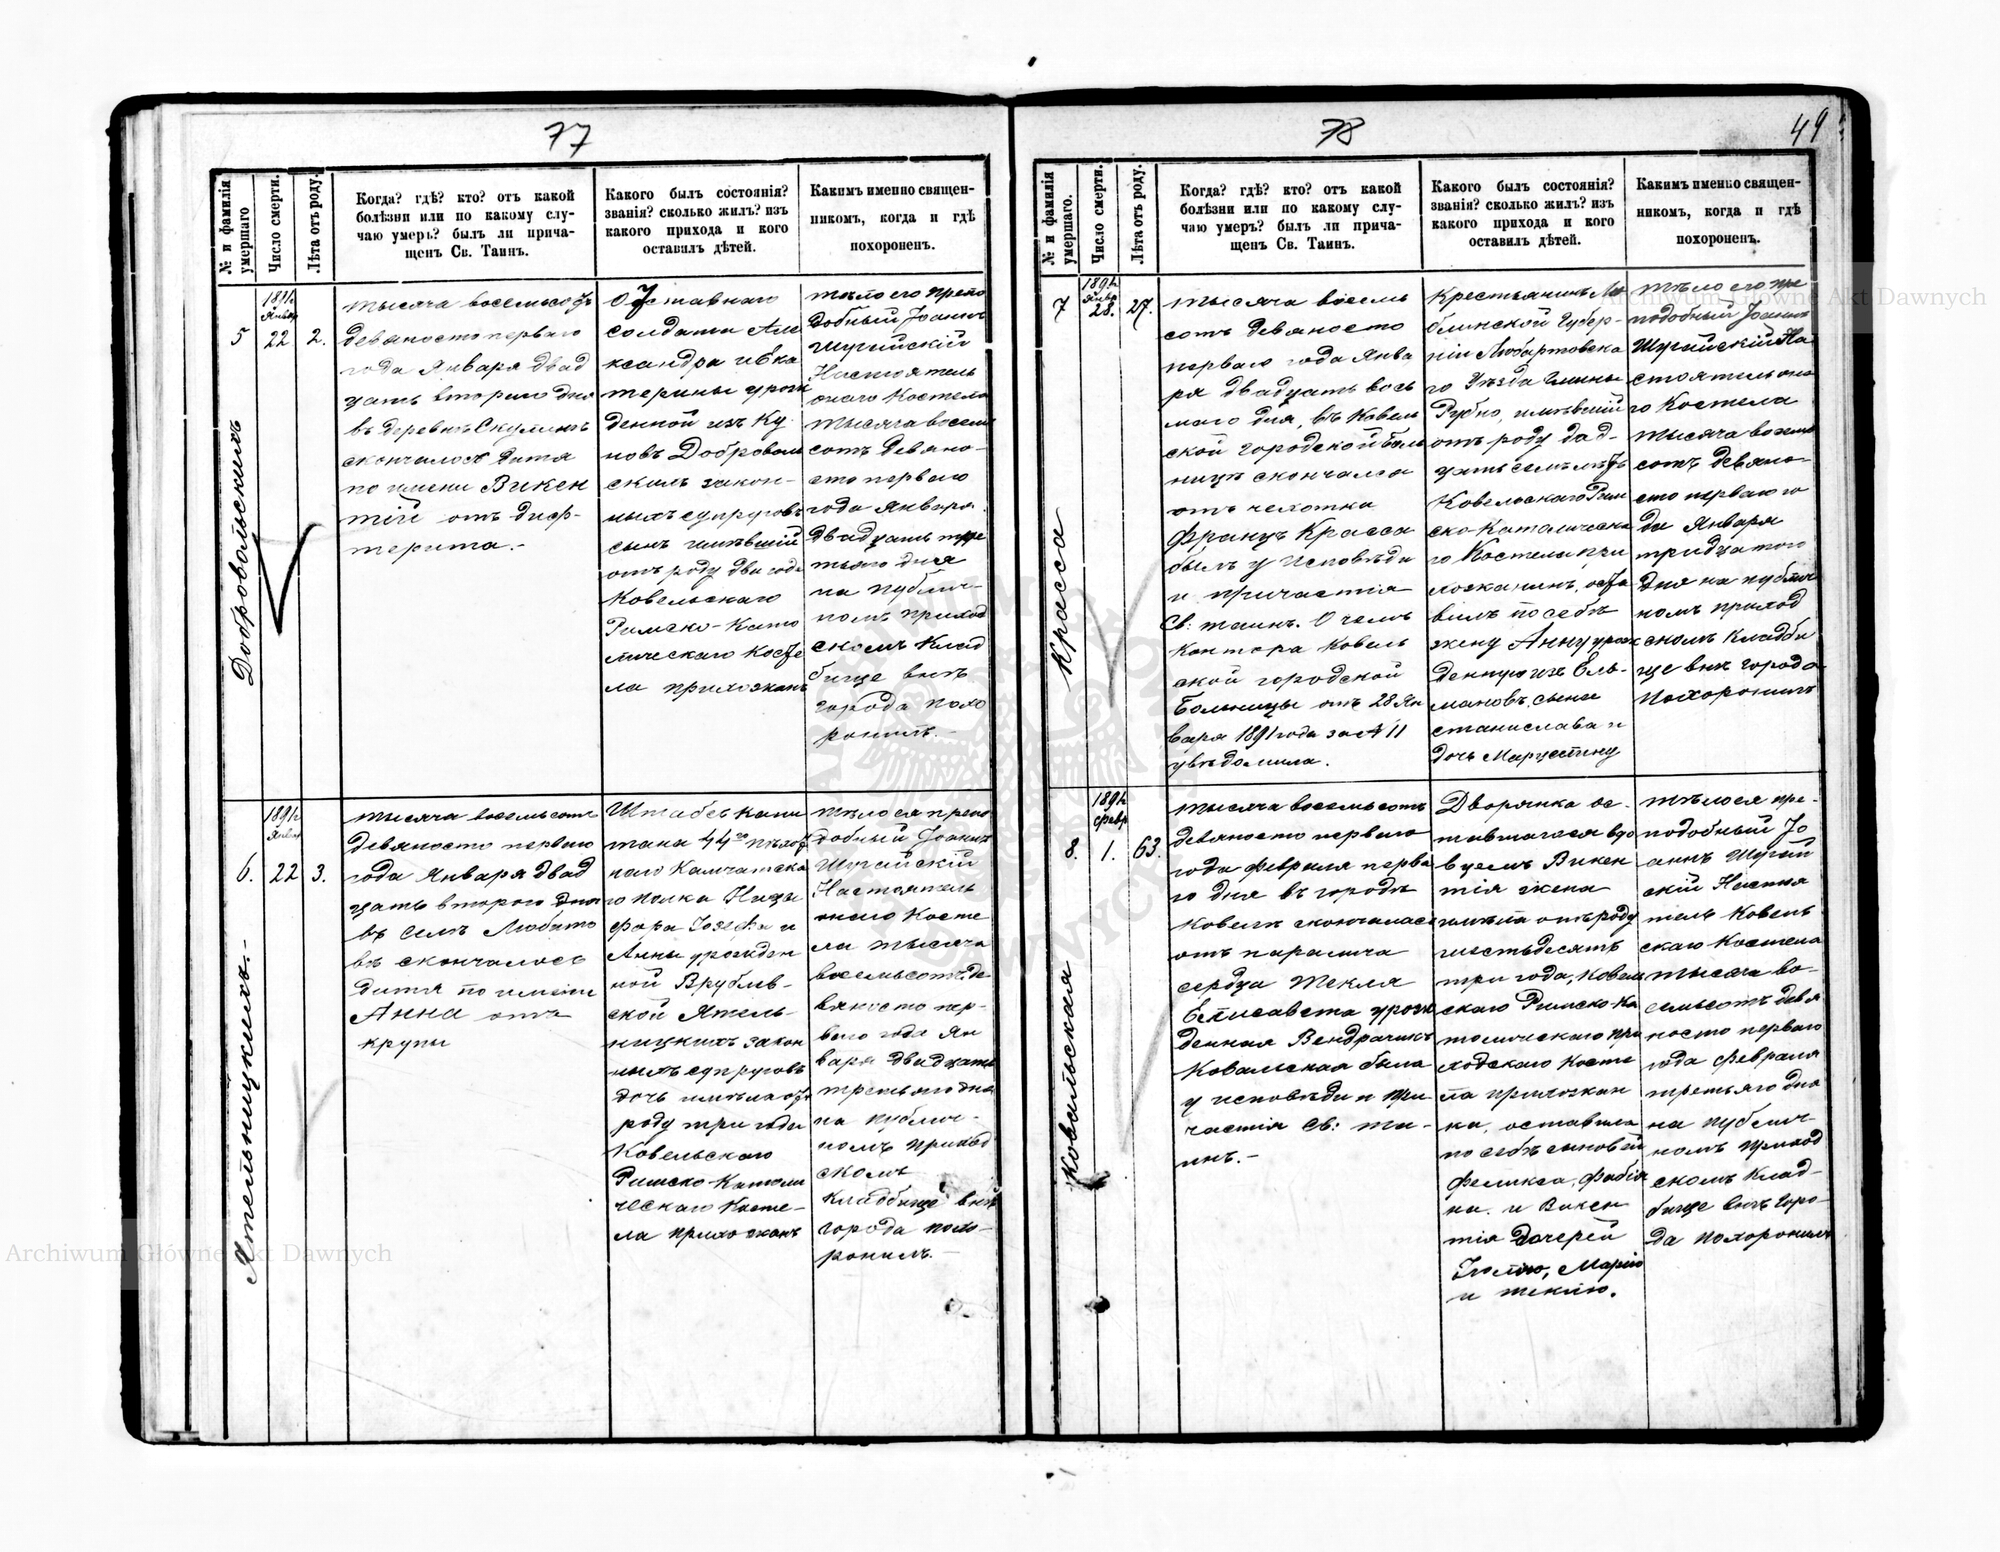 77
№ и фамилія умершаго
Число смерти.
Лѣта отъ роду.
Когда? гдѣ? кто? отъ какой
болѣзни или по какому слу-
чаю умеръ? былъ ли прича-
щенъ Св. Таинъ.
Какого былъ состоянія?
званія? сколько жилъ? изъ
какого прихода и кого
оставилъ дѣтей.
Какимъ именно священ-
никомъ, когда и гдѣ
похороненъ.
5
Добровольскихъ
Январ
22
2.
тысяча восемьсотъ
девяносто перваго
года Января двад
цать втораго дня
въ деревнѣ Скулинѣ
скончалось дитя
по имени Викен
тій отъ диф-
терита.-
Отставнаго
солдата Але
ксандра и Ека
терины урож
денной изъ Ку
новъ Доброволь
скихъ закон-
ныхъ супруговъ
сынъ имѣвшій
отъ роду два года
Ковельскаго
Римско-Като
лическаго Косте
ла прихожанъ
тѣло его препо
добный Іоаннъ
Шугийскій
Настоятель
онаго Костела
тысяча восемь
сотъ девяно-
сто перваго
года Января
двадцать тре
тьяго дня
на публич-
номъ приход
скомъ Клад
бище внѣ
города похо
ронилъ.-
6.
Ятельницкихъ.-
Январ
22
3.
тысяча восемьсотъ
девяносто перваго
года Января двад
цать втораго дня
въ селѣ Любито
въ скончалось
дитя по имени
Анна отъ
крупы
Штабсъ Капи
тана 44го пѣхот
наго Камчатска
го полка Ники
фора Іозефа и
Анны урожден
ной Врублев-
ской Ятель-
ницкихъ закон
ныхъ супруговъ
дочь имѣла отъ
роду три года
Ковельскаго
Римско-Католи
ческаго Косте-
ла прихожанъ
тѣло ея препо
добный Іоаннъ
Шугийскій
Настоятель
онаго Косте
ла тысяча
восемьсотъ де
вяносто пер-
ваго года Ян
варя двадцать
третьяго дня
на публич-
номъ приход
скомъ
Кладбище внѣ
города похо-
ронилъ.-
78
49
№ и фамилія умершаго.
Число смерти.
Лѣта отъ роду.
Когда? гдѣ? кто? отъ какой
болѣзни или по какому слу-
чаю умеръ? былъ ли прича-
щенъ Св. Таинъ.
Какого былъ состоянія?
званія? сколько жилъ? изъ
какого прихода и кого
оставилъ дѣтей.
Какимъ именно священ-
никомъ, когда и гдѣ
похороненъ.
7
Красса
Январ
28.
27.
тысяча восемь
сотъ девяносто
перваго года Янва
ря двадцать вось
маго дня, въ Ковель
ской городской боль
ницѣ скончался
отъ чехотка
Францъ Красса
былъ у Исповѣди
и причастія
Св: таинъ. О чемъ
Контора Ковель
ской городской
Больницы отъ 28 Ян
варя 1891 года за № 11
увѣдомила.
Крестьянинъ Лю
блинской Губер-
ніи Любартовска
го Уѣзда Гмины
Рудно, имѣвшій
отъ роду двад-
цать семь лѣтъ
Ковельскаго Рим
ско-Католическа
го Костела при
хожанинъ, оста
вилъ по себѣ
жену Анну урож
денную изъ Ель-
мановъ, сына
Станислава и
дочь Марцелину
тѣло его пре
подобный Іоаннъ
Шугийскій На
стоятель она
го Костела
тысяча восемь
сотъ девяно-
сто перваго го
да Января
тридцатого
дня на публич
номъ приход
скомъ Кладби
ще внѣ города
похоронилъ
8.
Ковальская
Февр
1.
63.
тысяча восемьсотъ
девяносто перваго
года Февраля перва
го дня въ городѣ
Ковелѣ скончалась
отъ паралича
сердца Текля
Елисавета урож
денная Вендрачикъ
Ковальская была
у исповѣди и при
частія Св: та-
инъ.-
Дворянка ос-
тавшагося вдо
вцемъ Викен
тія жена
имѣла отъ роду
шестьдесятъ
три года, Ковель
скаго Римско-Ка
толическаго при
ходскаго Косте
ла прихожан
ка, оставила
по себѣ сыновей
Феликса, Фабія
на и Викен
тія дочерей
Юлію, Марію
и Теклю.
тѣло ея пре-
подобный Іо
аннъ Шугий
скій Настоя
тель Ковель
скаго Костела
тысяча во-
семьсотъ девя
носто перваго
года Февраля
третьяго дня
на публич
номъ приход
скомъ Клад-
бище внѣ горо-
да похоронилъ
Archiwum Główne Akt Dawnych
Archiwum Główne Akt Dawnych